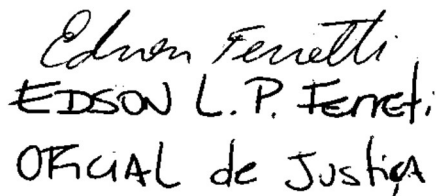 Edson Ferretti
EDSON L.P. Ferreti
OFICIAL de Justiça